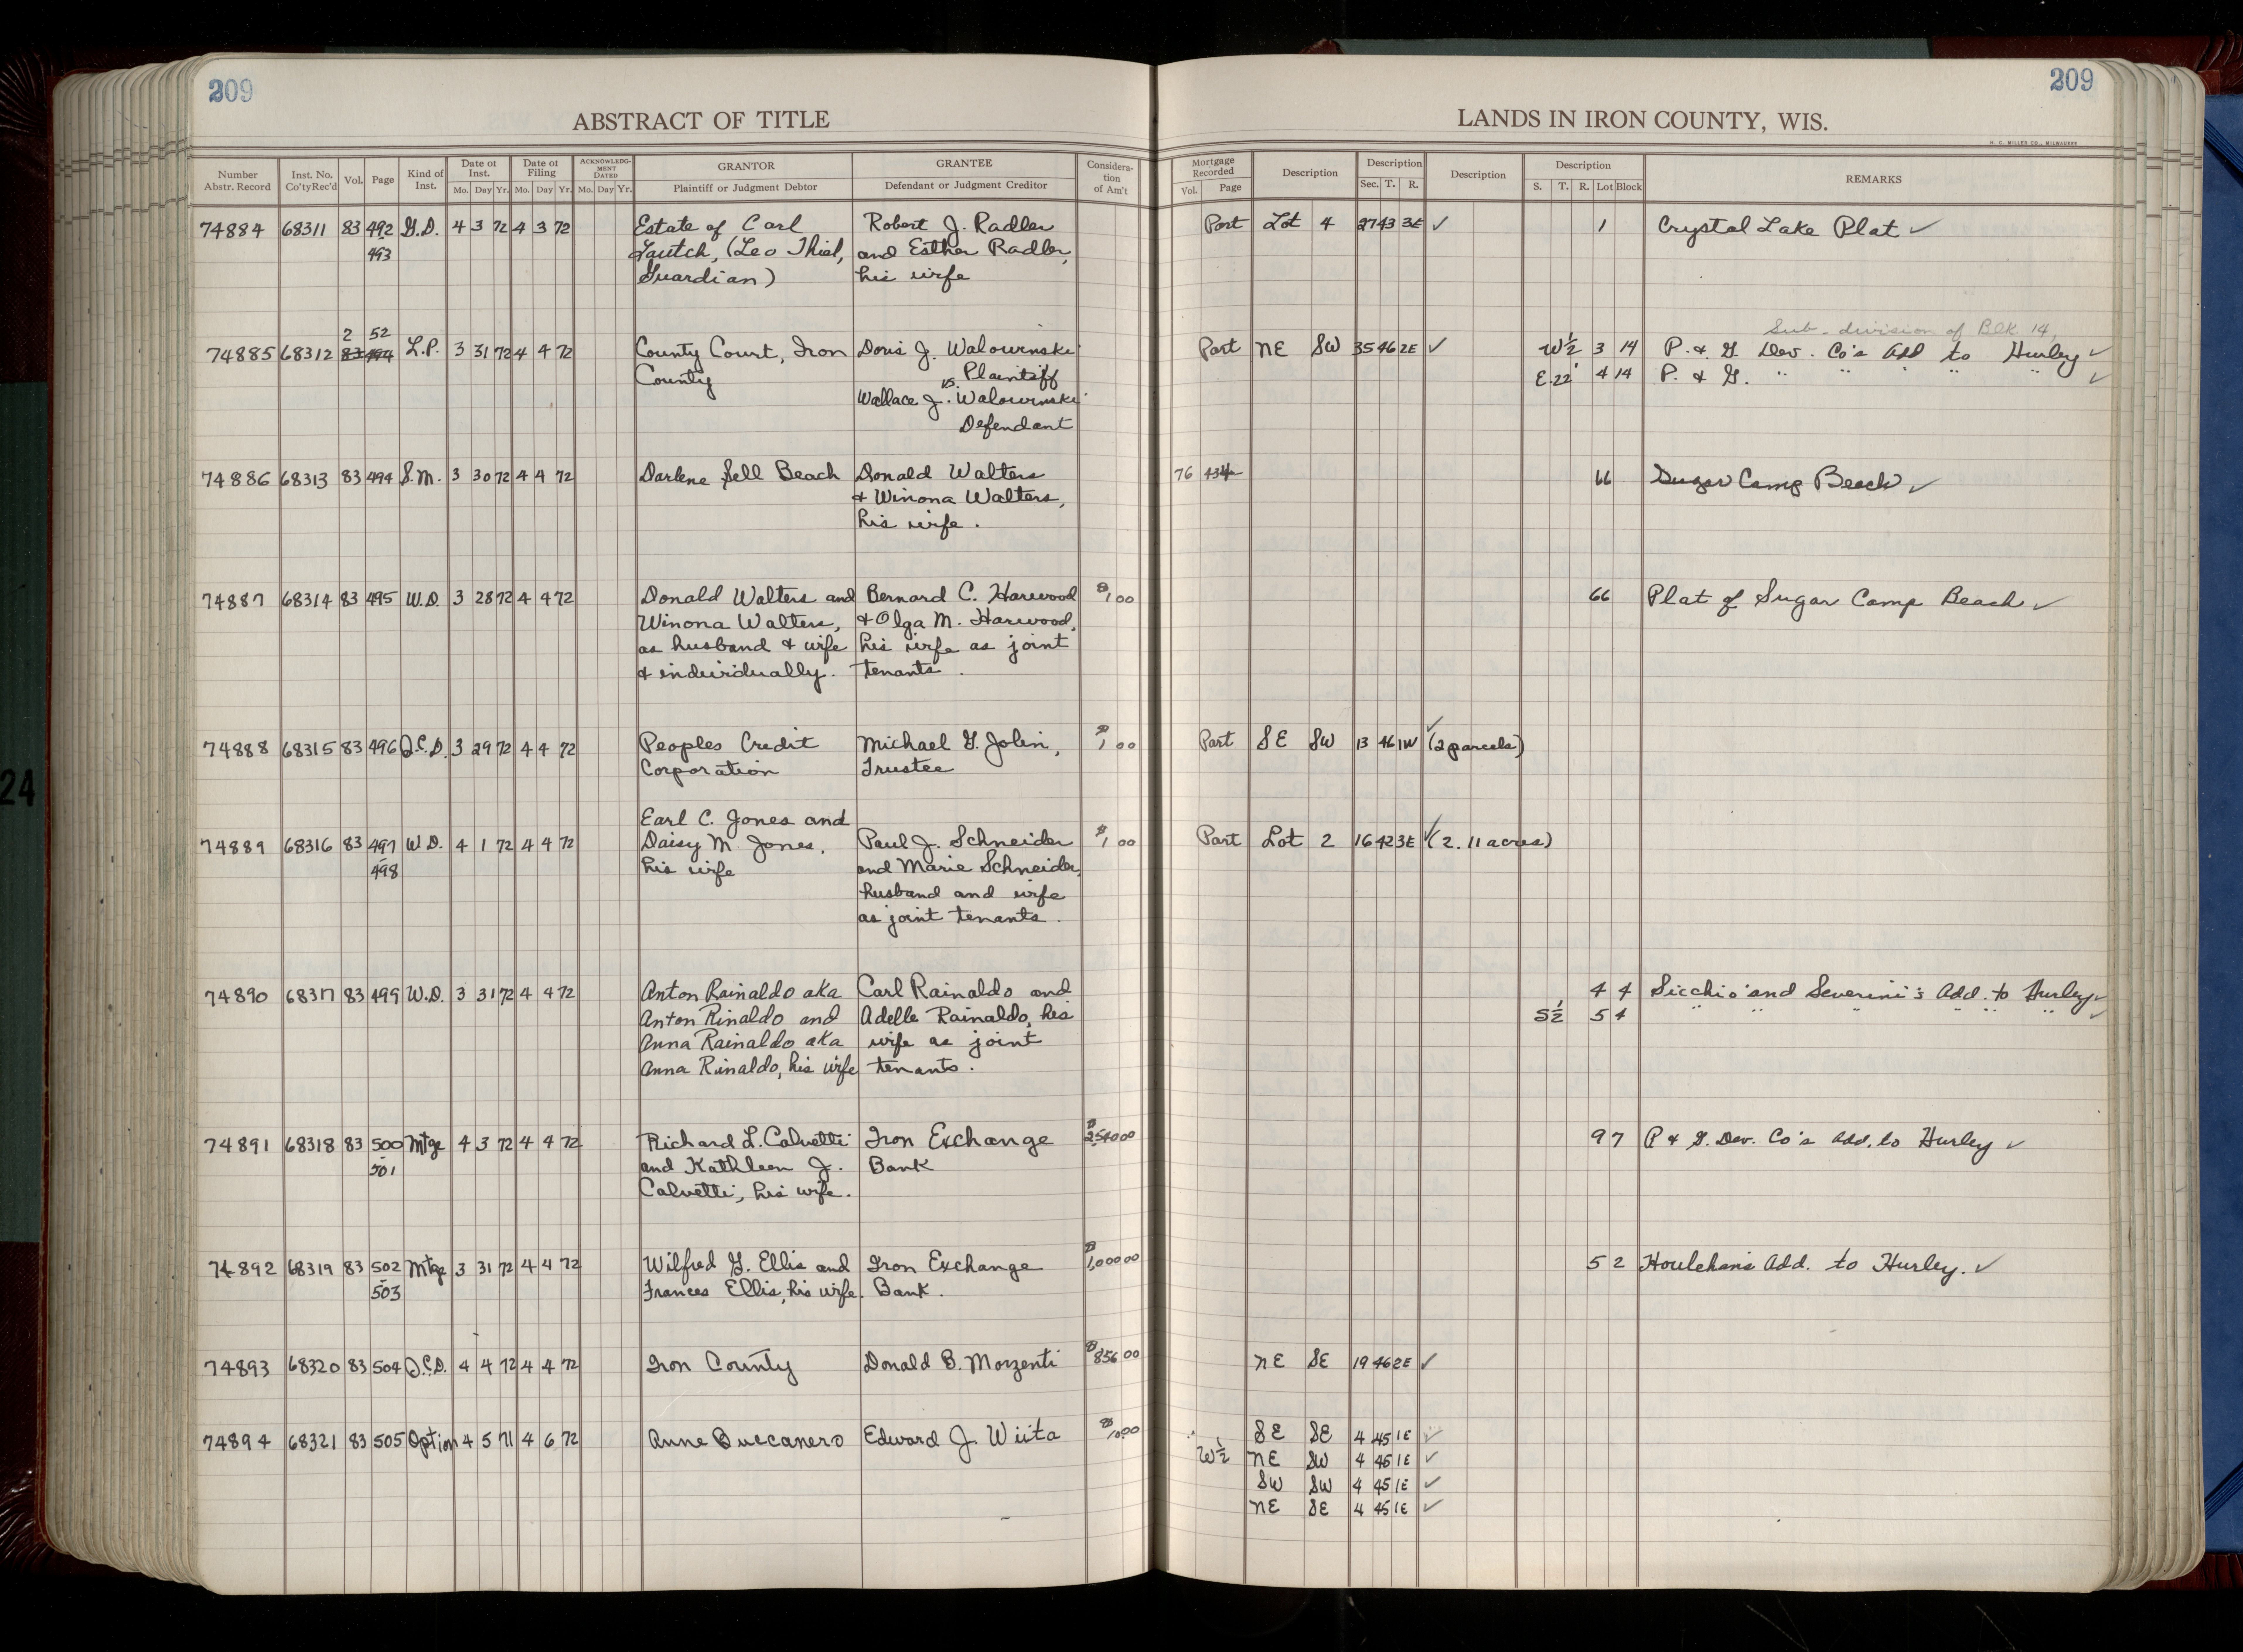 209
209
ABSTRACT OF TITLE
LANDS IN IRON COUNTY, WIS.
H. C. MILLER CO., MILWAUKEE
Number Abstr. Record | Inst. No. Co'ty Rec'd | Vol. | Page | Kind of Inst. | Date of Inst. Mo. Day Yr. | Date of Filing Mo. Day Yr. | ACKNOWLEDGMENT DATED Mo. Day Yr. | GRANTOR Plaintiff or Judgment Debtor | GRANTEE Defendant or Judgment Creditor | Consideration of Am't | Mortgage Recorded Vol. Page | Description | Description Sec. T. R. | Description | Description S. T. R. Lot Block | REMARKS
74884 68311 83 492 G.D. 4 3 72 4 3 72 Estate of Carl Robert J. Radler Part Lot 4 27 43 3E ✓ 1 Crystal Lake Plat ✓
493 (Leo Thiel, and Esther Radler,
Guardian) his wife
2 52 Sub-division of Blk. 14,
74885 68312 83 494 L.P. 3 31 72 4 4 72 County Court, Iron Doris J. Walowinski Part NE SW 35 46 2E ✓ W½ 3 14 P. & G. Dev. Co's Add to Hurley ✓
County vs. Plaintiff E.22' 4 14 P. & G. " " " " " ✓
Wallace J. Walowinski
Defendant
74886 68313 83 494 S.M. 3 30 72 4 4 72 Darlene Sell Beach Donald Walters 76 434 66 Sugar Camp Beach ✓
& Winona Walters,
his wife.
74887 68314 83 495 W.D. 3 28 72 4 4 72 Donald Walters and Bernard C. Harwood $1 00 66 Plat of Sugar Camp Beach ✓
Winona Walters, & Olga M. Harwood,
as husband & wife his wife as joint
& individually. tenants.
74888 68315 83 496 Q.C.D. 3 29 72 4 4 72 Peoples Credit Michael G. Jolin, $1 00 Part SE SW 13 46 1W ✓ (2 parcels)
Corporation Trustee
Earl C. Jones and
74889 68316 83 497 W.D. 4 1 72 4 4 72 Daisy M. Jones, Paul J. Schneider $1 00 Part Lot 2 16 42 3E ✓ (2.11 acres)
498 his wife and Marie Schneider,
husband and wife
as joint tenants.
74890 68317 83 499 W.D. 3 31 72 4 4 72 Anton Rainaldo aka Carl Rainaldo and 4 4 Sicchio and Severini's Add. to Hurley ✓
Anton Rinaldo and Adelle Rainaldo, his S½ 5 4 " " " " " " ✓
Anna Rainaldo aka wife as joint
Anna Rinaldo, his wife tenants.
74891 68318 83 500 Mtge 4 3 72 4 4 72 Richard L. Calvetti Iron Exchange $2,540 00 9 7 P & G. Dev. Co's Add. to Hurley ✓
501 and Kathleen J. Bank
Calvetti, his wife.
74892 68319 83 502 Mtge 3 31 72 4 4 72 Wilfred G. Ellis and Iron Exchange $1,000 00 5 2 Houlehan's Add. to Hurley. ✓
503 Frances Ellis, his wife. Bank.
74893 68320 83 504 Q.C.D. 4 4 72 4 4 72 Iron County Donald B. Morzenti $856 00 NE SE 19 46 2E ✓
74894 68321 83 505 Option 4 5 71 4 6 72 Anne Buccanero Edward J. Wiita SE SE 4 45 1E ✓
W½ NE SW 4 45 1E ✓
SW SW 4 45 1E ✓
NE SE 4 45 1E ✓
24